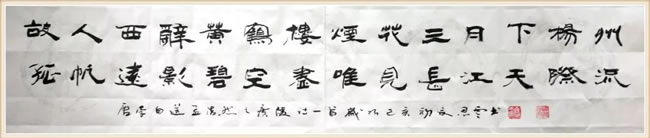 故人西辭黄鶴樓煙花三月下楊州
孤帆遠影碧空盡唯見長江天際流
唐李白送孟浩然之廣陵詩一首歲次己亥初夏書